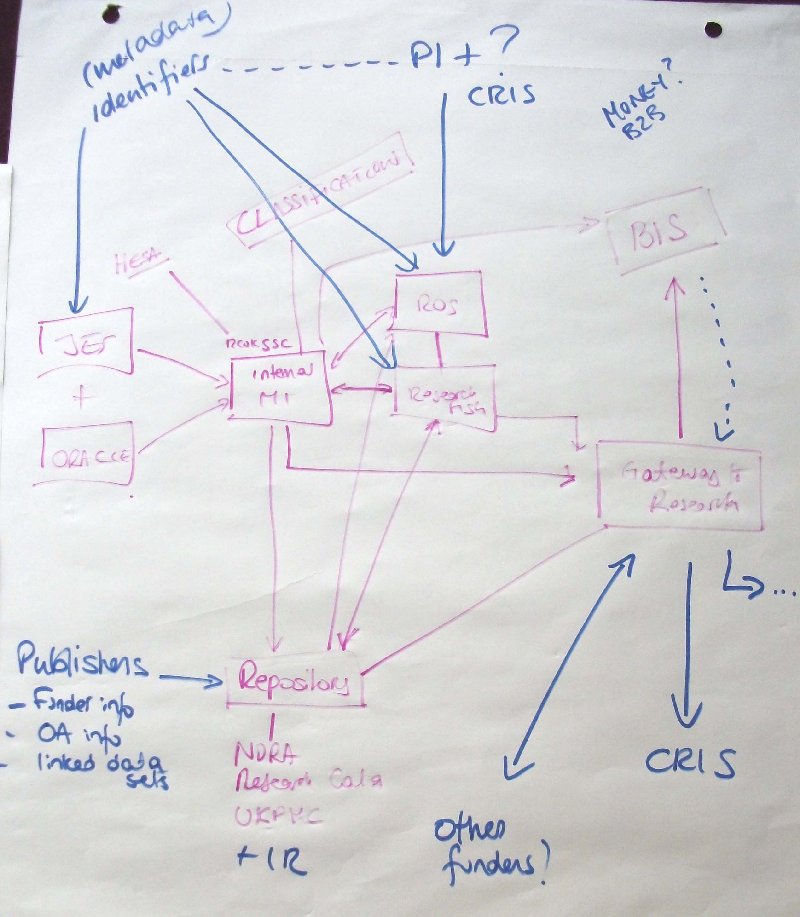 (metadata)
identifiers
PI + ?
CRIS
MONEY?
B2B
CLASSIFICATION
BIS
HESA
ROS
JES
RCUK SSC
Internal
MI
Research
Fish
+
ORACLE
Gateway to
Research
...
Publishers
- Funder info
- OA info
- linked data
sets
Repository
NORA
Research Data
UKPMC
+ IR
CRIS
Other
funders?